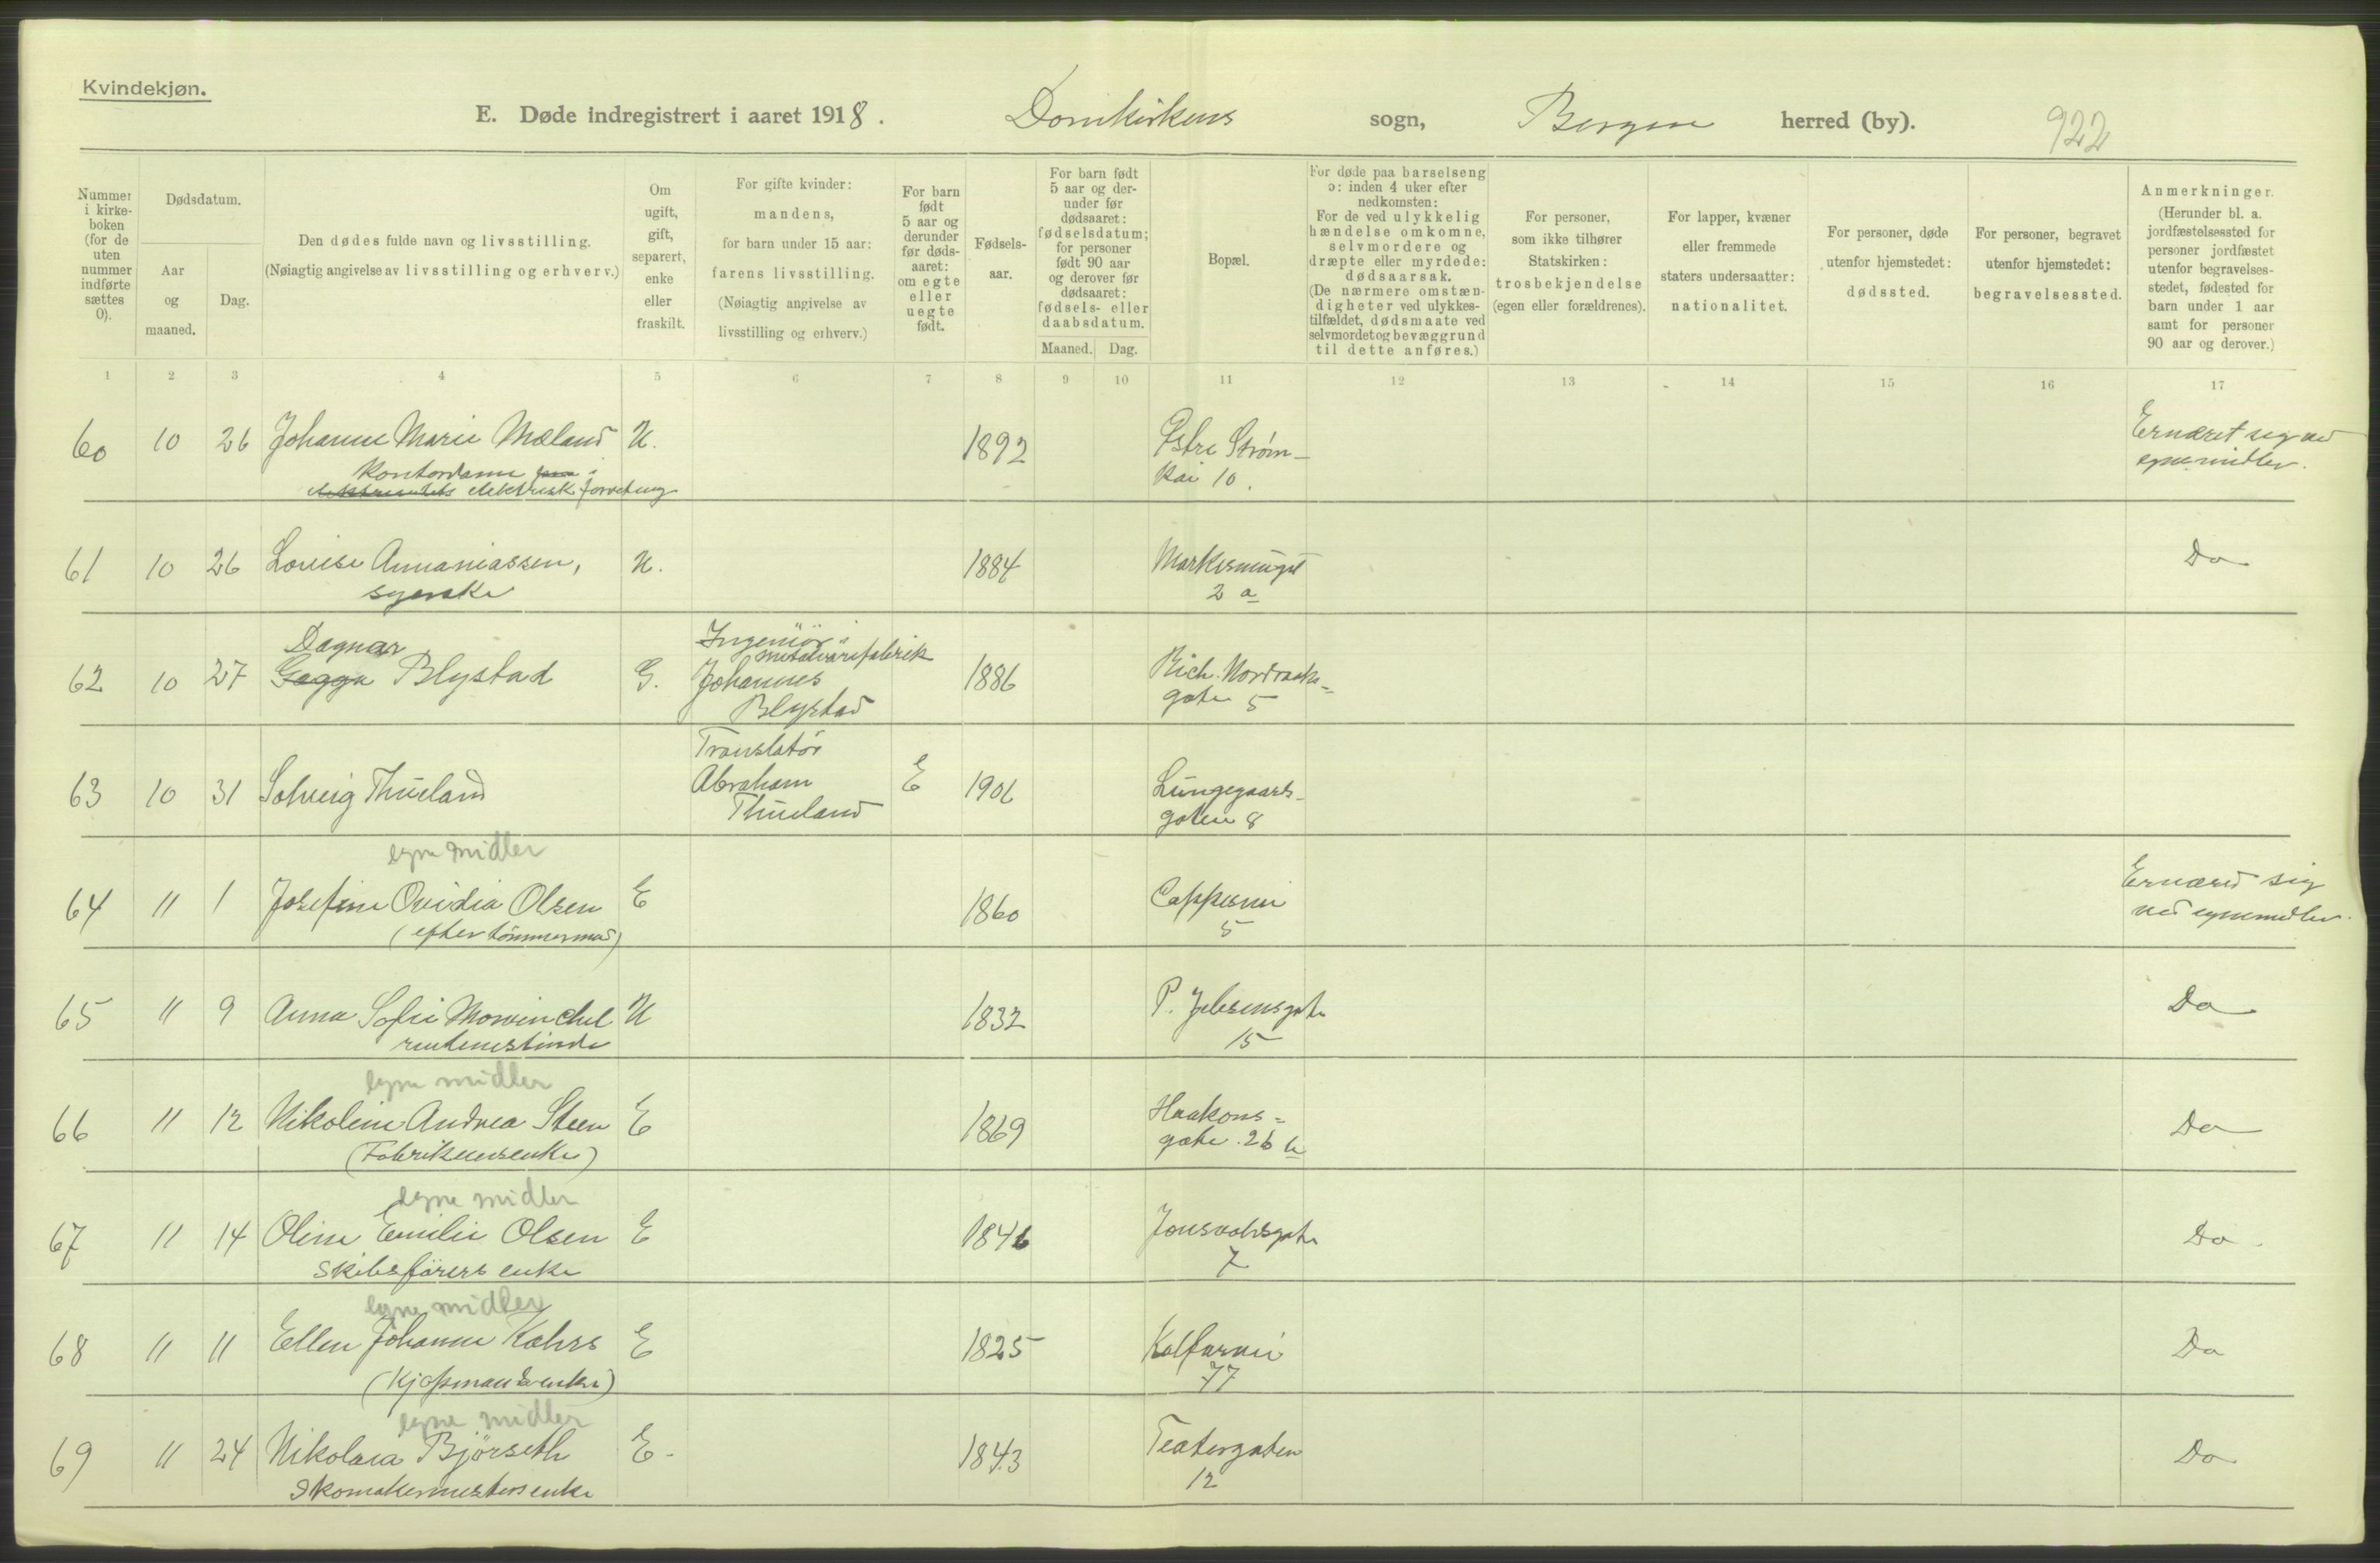 Kvindekjøn.
E. Døde indregistrert i aaret 1918. Domkirkens sogn, Bergen herred (by). 922
Nummer i kirke-boken (for de uten nummer indførte sættes 0).
Dødsdatum.
Aar og maaned.
Dag.
Den dødes fulde navn og livsstilling.
(Nøiagtig angivelse av livsstilling og erhverv.)
Om ugift, gift, separert, enke eller fraskilt.
For gifte kvinder:
mandens,
for barn under 15 aar:
farens livsstilling.
(Nøiagtig angivelse av
livsstilling og erhverv.)
For barn født 5 aar og derunder før døds-aaret: om egte eller uegte født.
Fødsels-aar.
For barn født
5 aar og der-
under før
dødsaaret:
fødselsdatum;
for personer
født 90 aar
og derover før
dødsaaret:
fødsels- eller
daabsdatum.
Maaned. Dag.
Bopæl.
For døde paa barselseng
ɔ: inden 4 uker efter
nedkomsten:
For de ved ulykkelig
hændelse omkomne,
selvmordere og
dræpte eller myrdede:
dødsaarsak.
(De nærmere omstæn-
digheter ved ulykkes-
tilfældet, dødsmaate ved
selvmordet og bevæggrund
til dette anføres.)
For personer,
som ikke tilhører
Statskirken:
trosbekjendelse
(egen eller forældrenes).
For lapper, kvæner
eller fremmede
staters undersaatter:
nationalitet.
For personer, døde
utenfor hjemstedet:
dødssted.
For personer, begravet
utenfor hjemstedet:
begravelsessted.
Anmerkninger.
(Herunder bl. a.
jordfæstelsessted for
personer jordfæstet
utenfor begravelses-
stedet, fødested for
barn under 1 aar
samt for personer
90 aar og derover.)
1 2 3 4 5 6 7 8 9 10 11 12 13 14 15 16 17
60 10 26 Johanne Marie Mæland U. 1892 Østre Strøm- Ernæret sig ved
Kontordame i Kai 10. egne midler.
elektrisk forretning
61 10 26 Louise Annaniassen, U. 1884 Markesmuget Do
syerske 2 a
Dagmar Ingeniør i
metalvarefabrik
62 10 27 Gagga Blystad G. Johannes 1886 Rich. Nordraaks-
Blystad gate 5
Translatör
63 10 31 Solveig Thueland Abraham E 1906 Lungegaards-
Thueland gaten 8
egne midler
64 11 1 Josefine Ovidia Olsen E 1860 Cappesvei Ernæred sig
(efter tømmermand) 5 ved egne midler.
65 11 9 Anna Sofie Mowinckel U 1832 P. Jebsensgate Do
rentenistinde 15
egne midler
66 11 12 Nikoline Andrea Steen E 1869 Haakons- Do
(Fabrikeiersenke) gate 26 b
egne midler
67 11 14 Oline Emilie Olsen E 1846 Jonsvoldsgate Do
Skibsførers enke 7
egne midler
68 11 11 Ellen Johanne Kahrs E 1825 Kalfarvei Do
(Kjøpmands enke) 77
egne midler
69 11 24 Nikolaia Bjørseth E- 1843 Teatergaten Do
Skomakermesters enke 12